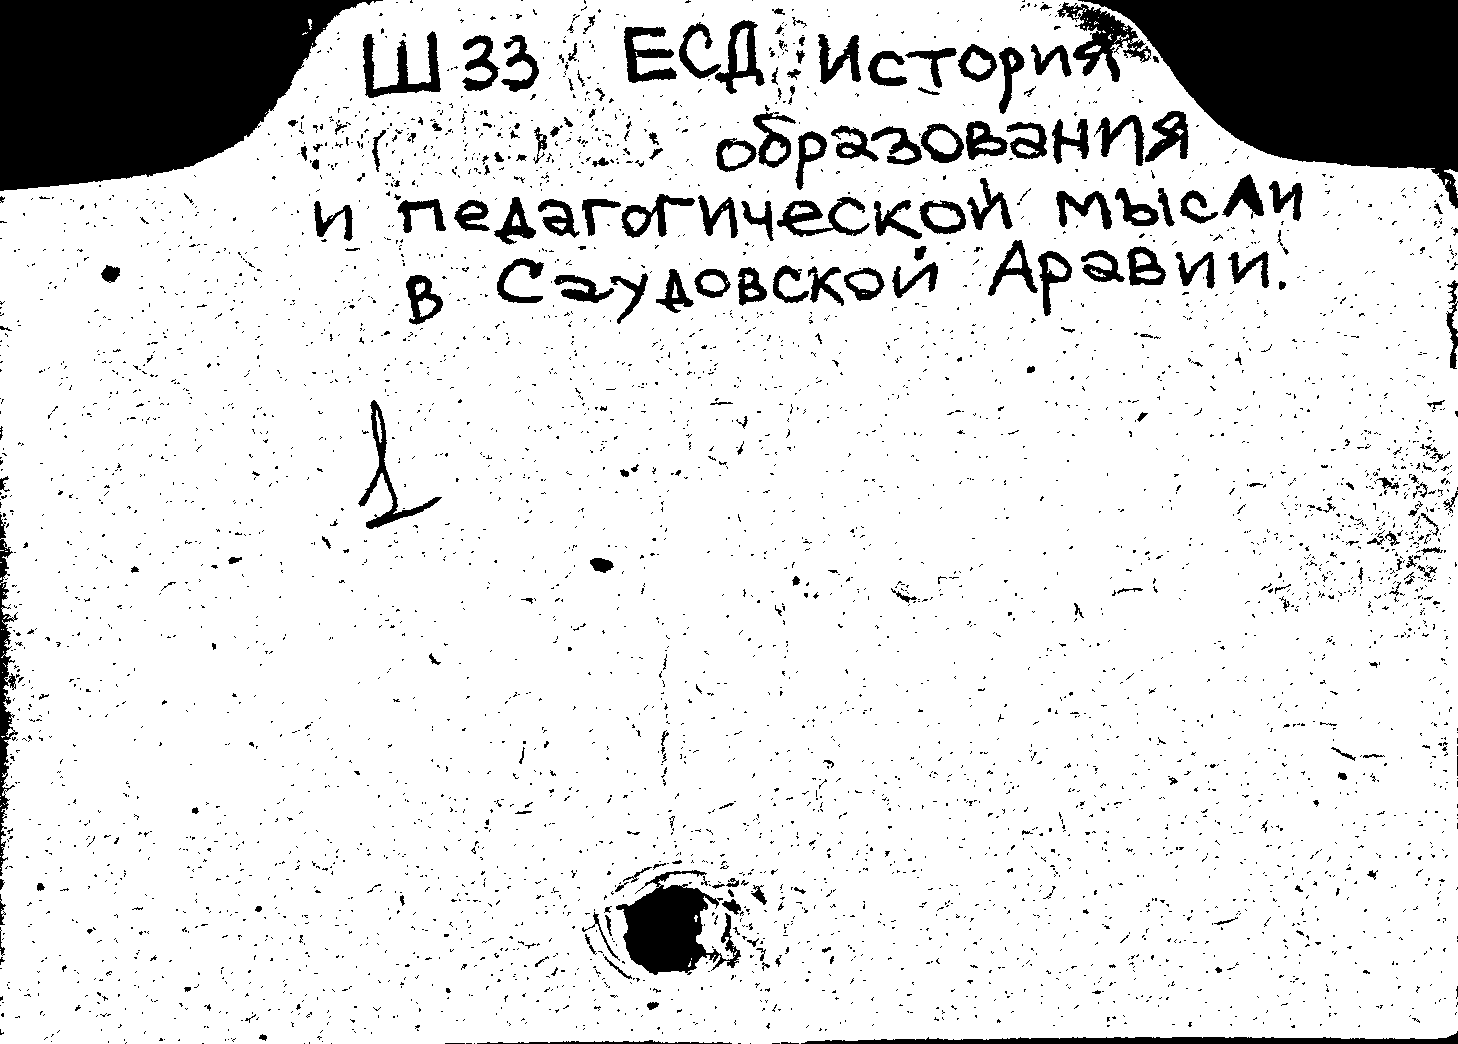 Ш33 ЕСД История
образования
и педагогической мысли
в Саудовской Аравии.
1